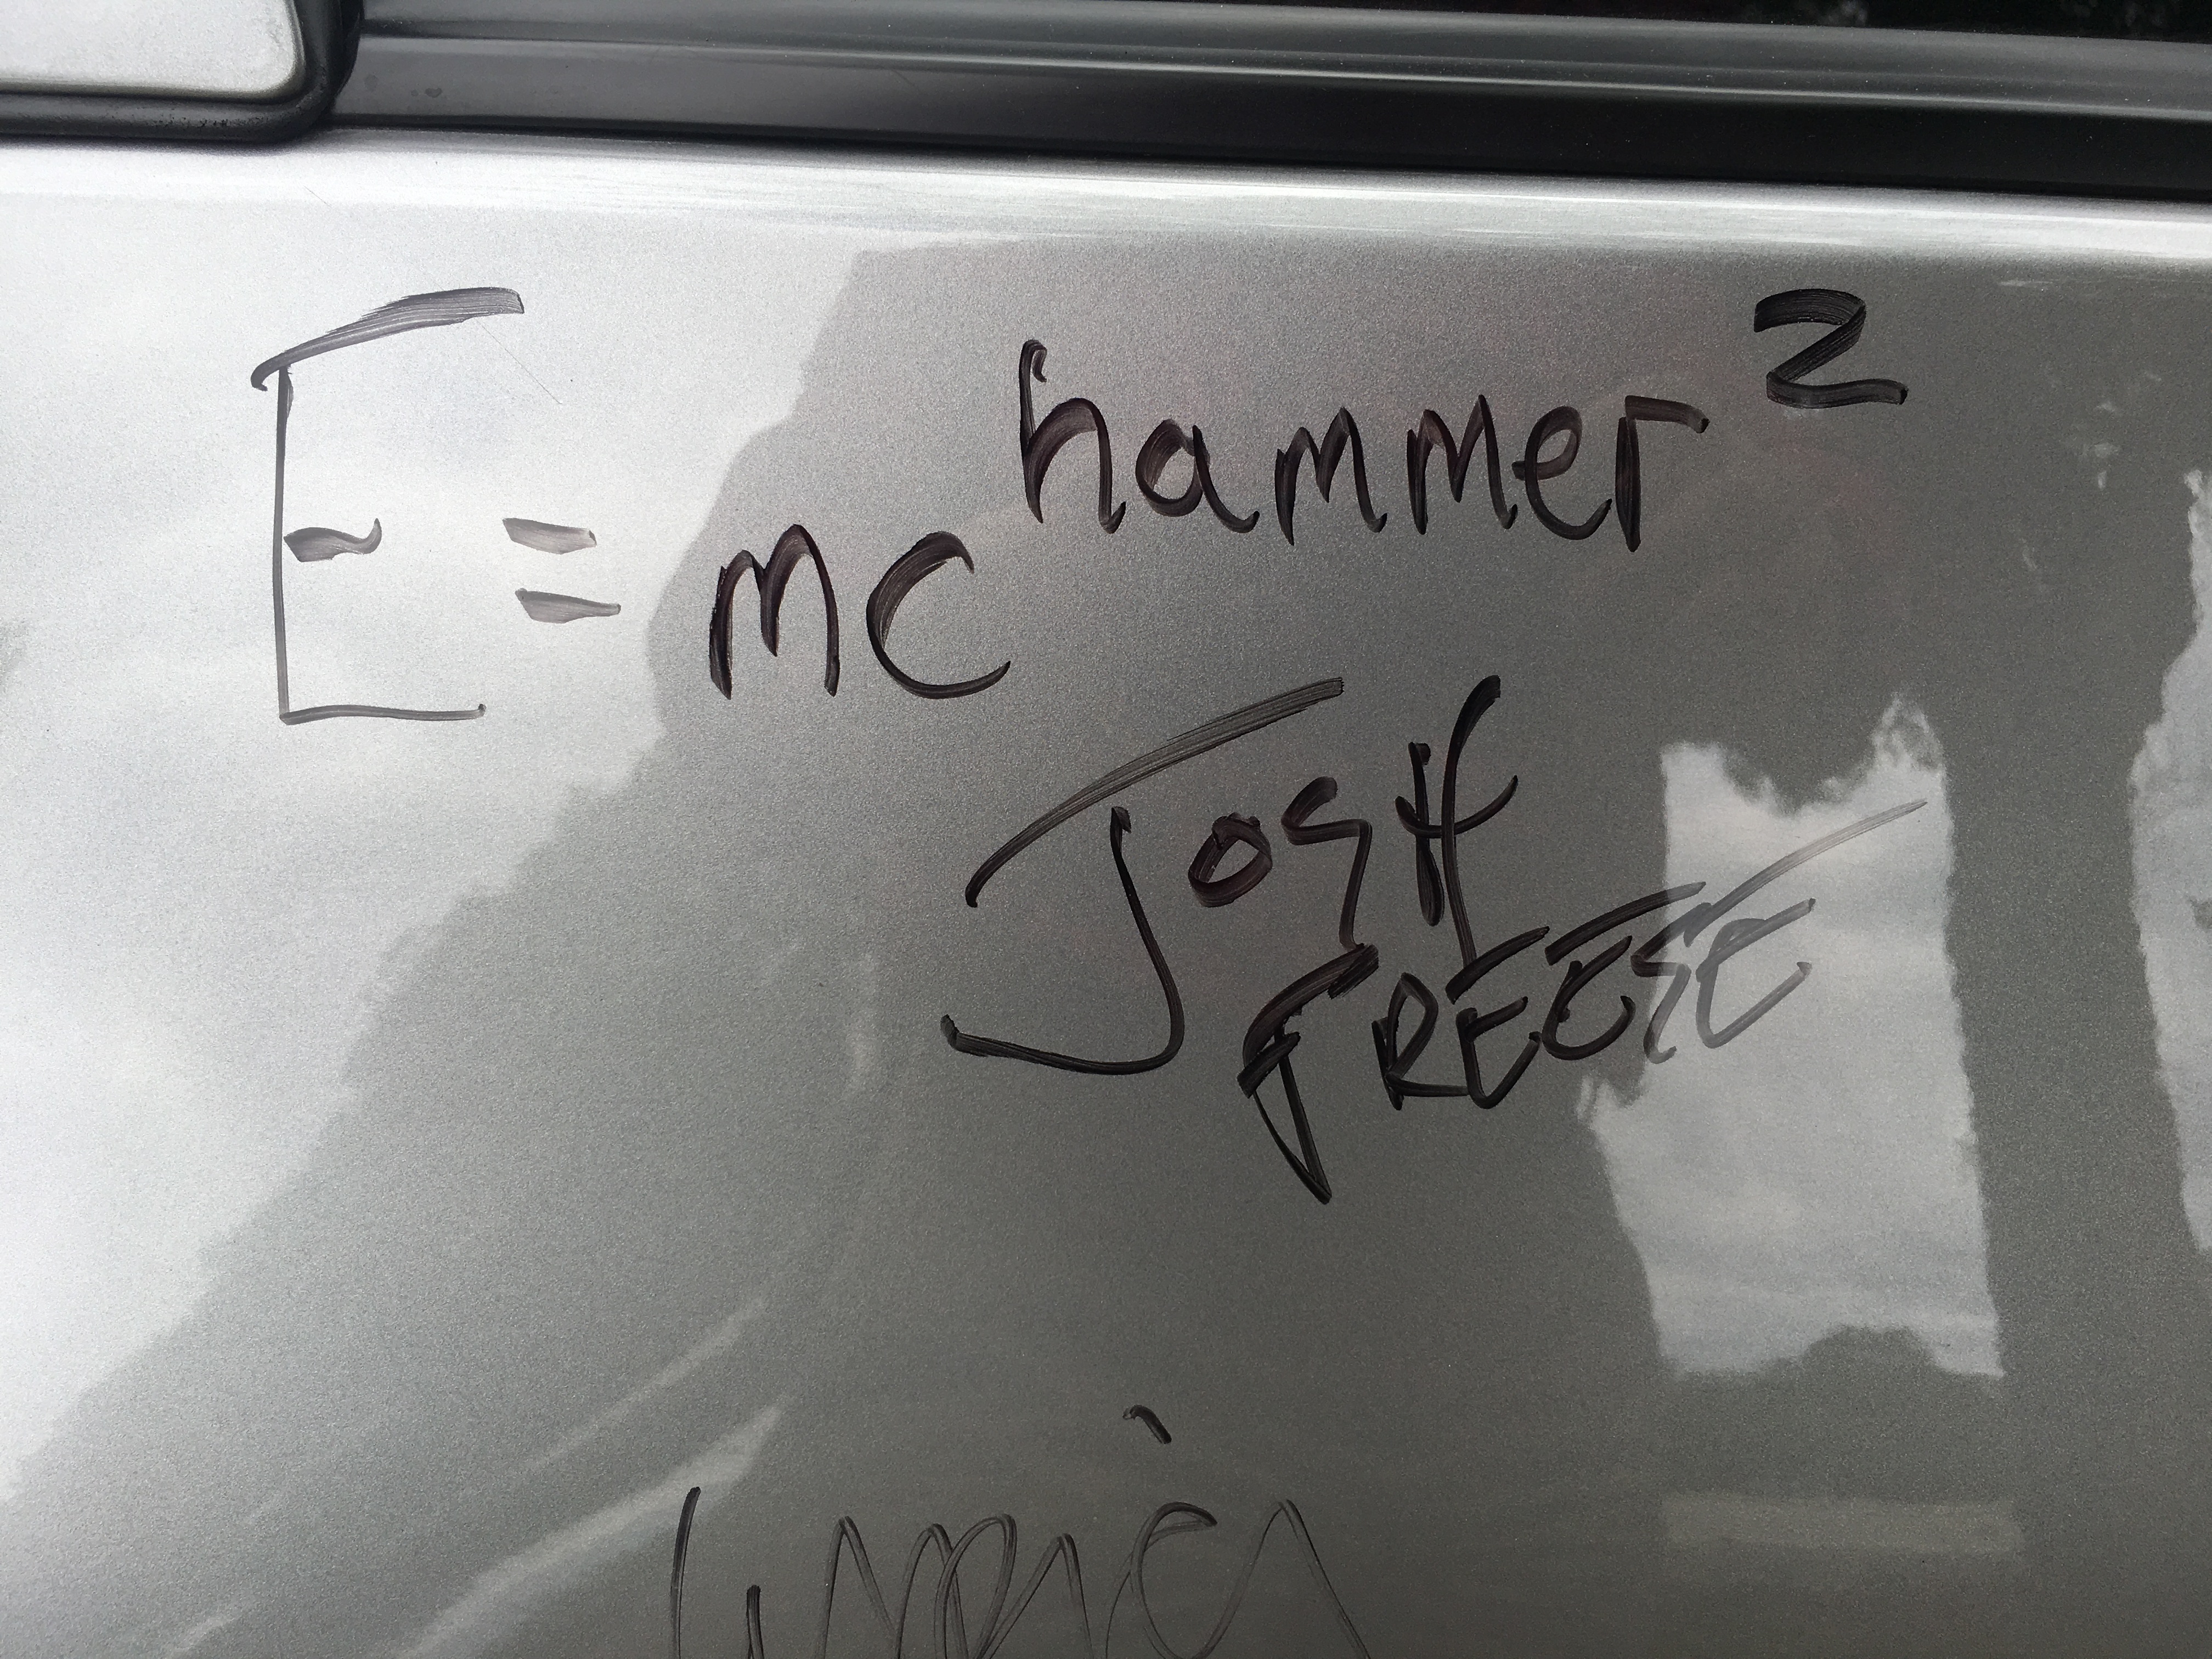 E = mc hammer²
JOSH
FREESE